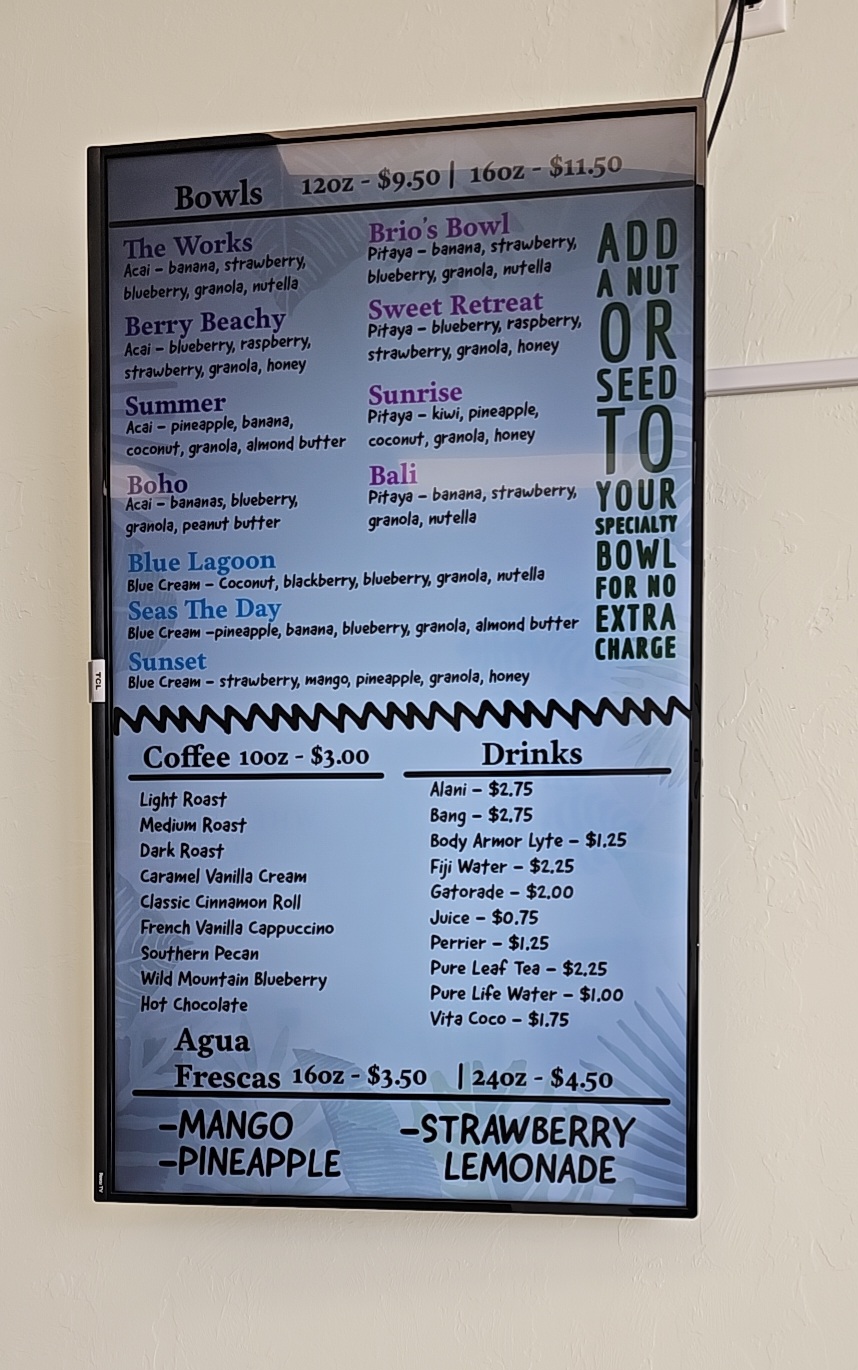 Bowls 12oz - $9.50 | 16oz - $11.50
The Works
Acai - banana, strawberry,
blueberry, granola, nutella
Berry Beachy
Acai - blueberry, raspberry,
strawberry, granola, honey
Summer
Acai - pineapple, banana,
coconut, granola, almond butter
Boho
Acai - bananas, blueberry,
granola, peanut butter
Brio's Bowl
Pitaya - banana, strawberry,
blueberry, granola, nutella
Sweet Retreat
Pitaya - blueberry, raspberry,
strawberry, granola, honey
Sunrise
Pitaya - kiwi, pineapple,
coconut, granola, honey
Bali
Pitaya - banana, strawberry,
granola, nutella
Blue Lagoon
Blue Cream - Coconut, blackberry, blueberry, granola, nutella
Seas The Day
Blue Cream -pineapple, banana, blueberry, granola, almond butter
Sunset
Blue Cream - strawberry, mango, pineapple, granola, honey
ADD
A NUT
OR
SEED
TO
YOUR
SPECIALTY
BOWL
FOR NO
EXTRA
CHARGE
TCL
Coffee 10oz - $3.00
Light Roast
Medium Roast
Dark Roast
Caramel Vanilla Cream
Classic Cinnamon Roll
French Vanilla Cappuccino
Southern Pecan
Wild Mountain Blueberry
Hot Chocolate
Drinks
Alani - $2.75
Bang - $2.75
Body Armor Lyte - $1.25
Fiji Water - $2.25
Gatorade - $2.00
Juice - $0.75
Perrier - $1.25
Pure Leaf Tea - $2.25
Pure Life Water - $1.00
Vita Coco - $1.75
Agua
Frescas 16oz - $3.50 | 24oz - $4.50
-MANGO
-PINEAPPLE
-STRAWBERRY
LEMONADE
Roku TV